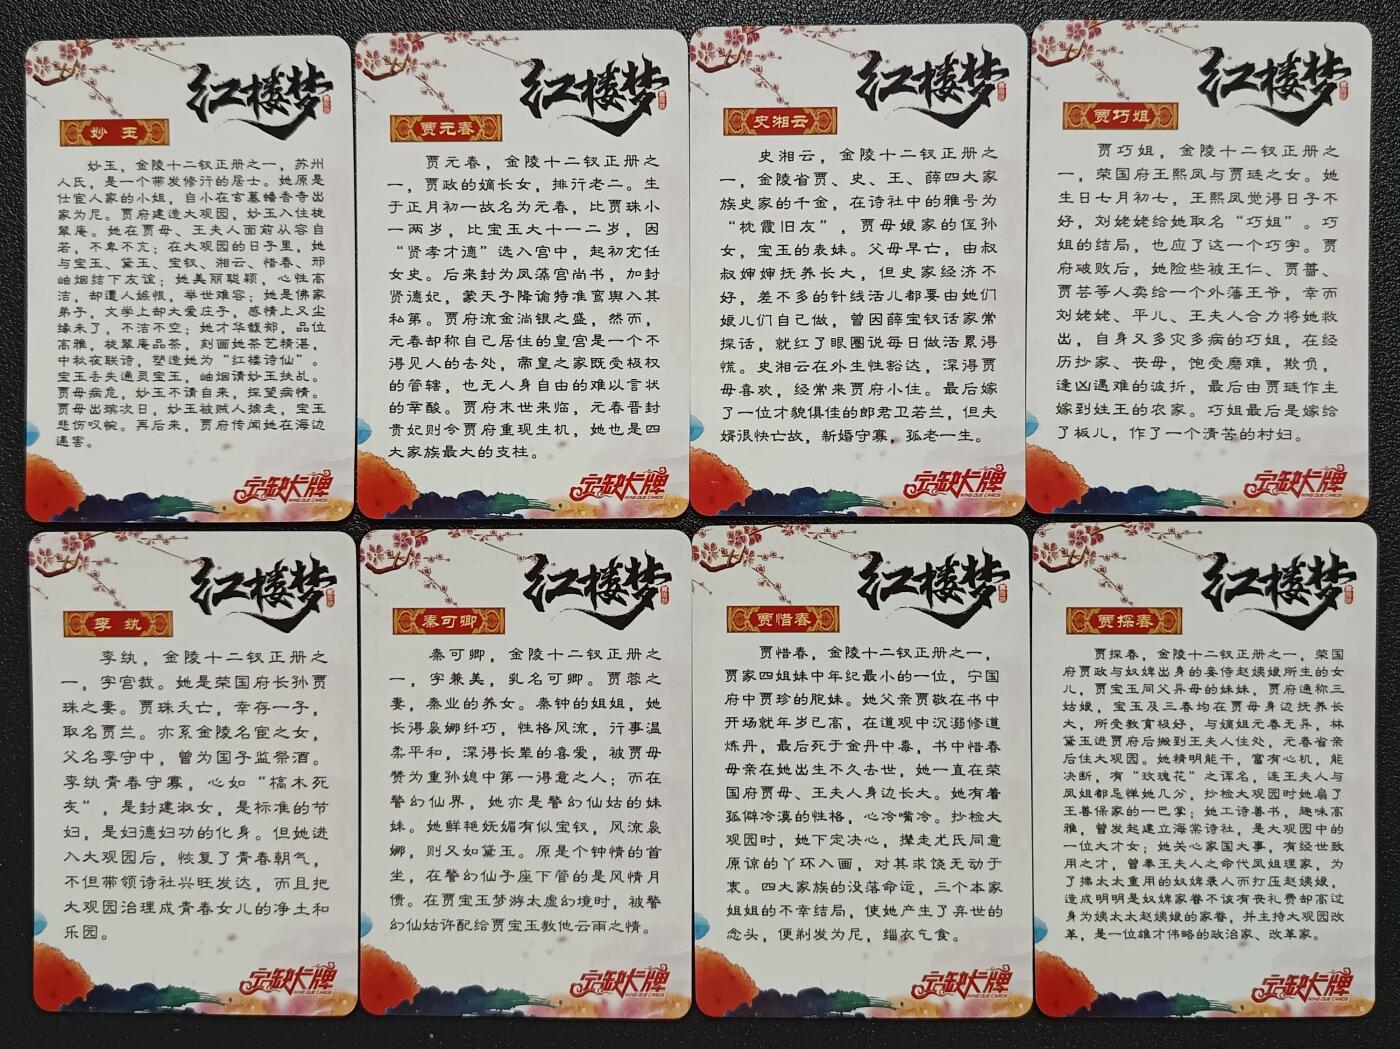 红楼梦
妙玉
妙玉，金陵十二钗正册之一，苏州
人氏，是一个带发修行的居士。她原是
仕宦人家的小姐，自小在玄墓蟠香寺出
家为尼。贾府建造大观园，妙玉入住栊
翠庵。她在贾母、王夫人面前从容自
若，不卑不亢；在大观园的日子里，她
与宝玉、黛玉、宝钗、湘云、惜春、邢
岫烟结下友谊；她美丽聪颖，心性高
洁，却遭人嫉恨，举世难容；她是佛家
弟子，文学上却大爱庄子，感情上又尘
缘未了，不洁不空；她才华馥郁，品位
高雅，栊翠庵品茶，刻画她茶艺精湛，
中秋夜联诗，塑造她为“红楼诗仙”。
宝玉丢失通灵宝玉，岫烟请妙玉扶乩。
贾母病危，妙玉不请自来，探望病情。
贾母出殡次日，妙玉被贼人掳走，宝玉
悲伤叹惋。再后来，贾府传闻她在海边
遇害。
宁缺卡牌
NING QUE CARDS
红楼梦
贾元春
贾元春，金陵十二钗正册之
一，贾政的嫡长女，排行老二。生
于正月初一故名为元春，比贾珠小
一两岁，比宝玉大十一二岁，因
“贤孝才德”选入宫中，起初充任
女史。后来封为凤藻宫尚书，加封
贤德妃，蒙天子降谕特准鸾舆入其
私第。贾府流金淌银之盛，然而，
元春却称自己居住的皇宫是一个不
得见人的去处，帝皇之家既受极权
的管辖，也无人身自由的难以言状
的辛酸。贾府末世来临，元春晋封
贵妃则令贾府重现生机，她也是四
大家族最大的支柱。
宁缺卡牌
NING QUE CARDS
红楼梦
史湘云
史湘云，金陵十二钗正册之
一，金陵省贾、史、王、薛四大家
族史家的千金，在诗社中的雅号为
“枕霞旧友”，贾母娘家的侄孙
女，宝玉的表妹。父母早亡，由叔
叔婶婶抚养长大，但史家经济不
好，差不多的针线活儿都要由她们
娘儿们自己做，曾因薛宝钗话家常
探话，就红了眼圈说每日做活累得
慌。史湘云在外生性豁达，深得贾
母喜欢，经常来贾府小住。最后嫁
了一位才貌俱佳的郎君卫若兰，但夫
婿很快亡故，新婚守寡，孤老一生。
宁缺卡牌
NING QUE CARDS
红楼梦
贾巧姐
贾巧姐，金陵十二钗正册之
一，荣国府王熙凤与贾琏之女。她
生日七月初七，王熙凤觉得日子不
好，刘姥姥给她取名“巧姐”。巧
姐的结局，也应了这一个巧字。贾
府破败后，她险些被王仁、贾蔷、
贾芸等人卖给一个外藩王爷，幸而
刘姥姥、平儿、王夫人合力将她救
出，自身又多灾多病的巧姐，在经
历抄家、丧母，饱受磨难，欺负，
逢凶遇难的波折，最后由贾琏作主
嫁到姓王的农家。巧姐最后是嫁给
了板儿，作了一个清苦的村妇。
宁缺卡牌
NING QUE CARDS
红楼梦
李纨
李纨，金陵十二钗正册之
一，字宫裁。她是荣国府长孙贾
珠之妻。贾珠夭亡，幸存一子，
取名贾兰。亦系金陵名宦之女，
父名李守中，曾为国子监祭酒。
李纨青春守寡，心如“槁木死
灰”，是封建淑女，是标准的节
妇，是妇德妇功的化身。但她进
入大观园后，恢复了青春朝气，
不但带领诗社兴旺发达，而且把
大观园治理成青春女儿的净土和
乐园。
宁缺卡牌
NING QUE CARDS
红楼梦
秦可卿
秦可卿，金陵十二钗正册之
一，字兼美，乳名可卿。贾蓉之
妻，秦业的养女。秦钟的姐姐，她
长得袅娜纤巧，性格风流，行事温
柔平和，深得长辈的喜爱，被贾母
赞为重孙媳中第一得意之人；而在
警幻仙界，她亦是警幻仙姑的妹
妹。她鲜艳妩媚有似宝钗，风流袅
娜，则又如黛玉。原是个钟情的首
坐，在警幻仙子座下管的是风情月
债。在贾宝玉梦游太虚幻境时，被警
幻仙姑许配给贾宝玉教他云雨之情。
宁缺卡牌
NING QUE CARDS
红楼梦
贾惜春
贾惜春，金陵十二钗正册之一，
贾家四姐妹中年纪最小的一位，宁国
府中贾珍的胞妹。她父亲贾敬在书中
开场就年岁已高，在道观中沉溺修道
炼丹，最后死于金丹中毒，书中惜春
母亲在她出生不久去世，她一直在荣
国府贾母、王夫人身边长大。她有着
孤僻冷漠的性格，心冷嘴冷。抄检大
观园时，她下定决心，撵走尤氏同意
原谅的丫环入画，对其求饶无动于
衷。四大家族的没落命运，三个本家
姐姐的不幸结局，使她产生了弃世的
念头，便剃发为尼，缁衣乞食。
宁缺卡牌
NING QUE CARDS
红楼梦
贾探春
贾探春，金陵十二钗正册之一，荣国
府贾政与奴婢出身的妾侍赵姨娘所生的女
儿，贾宝玉同父异母的妹妹，贾府通称三
姑娘，宝玉及三春均在贾母身边抚养长
大，所受教育极好，与嫡姐元春无异，林
黛玉进贾府后搬到王夫人住处，元春省亲
后住大观园。她精明能干，富有心机，能
决断，有“玫瑰花”之诨名，连王夫人与
凤姐都忌惮她几分，抄检大观园时她扇了
王善保家的一巴掌；她工诗善书，趣味高
雅，曾发起建立海棠诗社，是大观园中的
一位大才女；她关心家国大事，有经世致
用之才，曾奉王夫人之命代凤姐理家，为
了撵太太重用的奴婢袭人而打压赵姨娘，
造成明明是奴婢家眷不该有丧礼费却高过
身为姨太太赵姨娘的家眷，并主持大观园改
革，是一位雄才伟略的政治家、改革家。
宁缺卡牌
NING QUE CARDS